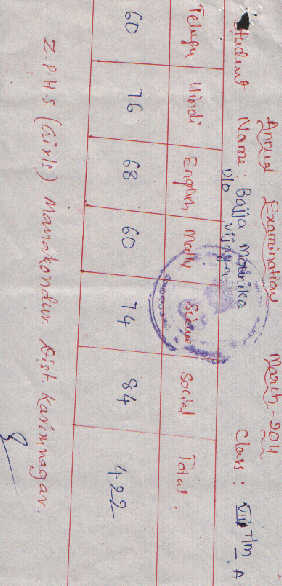 Annual Examination March - 2011
Student Name: Bajja Mounika Class: VIII T/M A
D/o Vijaya
Telugu Hindi English Maths Science Social Total
60 76 68 60 74 84 422
Z.P.H.S (Girls) Manakondur Dist. Karimnagar.